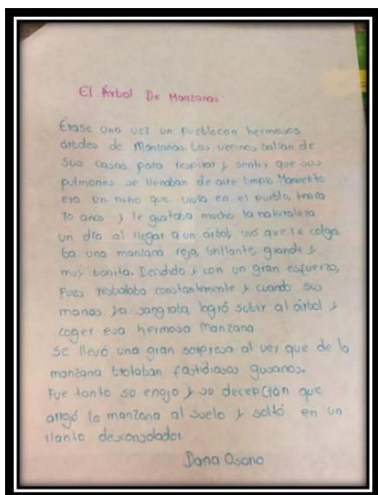 El Árbol De Manzanas
Érase una vez un pueblo con hermosos
árboles de Manzanas. Los vecinos salían de
sus casas para respirar y sentir que sus
pulmones se llenaban de aire limpio. Manolito
era un niño que vivía en el pueblo, tenía
10 años y le gustaba mucho la naturaleza
un día al llegar a un árbol, vió que le colga
ba una manzana roja, brillante, grande y
muy bonita. Decidido y con un gran esfuerzo,
Pues resbalaba constantemente y cuando sus
manos ya sangraba, logró subir al árbol y
coger esa hermosa Manzana
Se llevó una gran sorpresa al ver que de la
manzana brotaban fastidiosos gusanos.
Fue tanto su enojo y su decepción que
arrojó la manzana al suelo y saltó en un
llanto desconsolador.
Dana Osorio